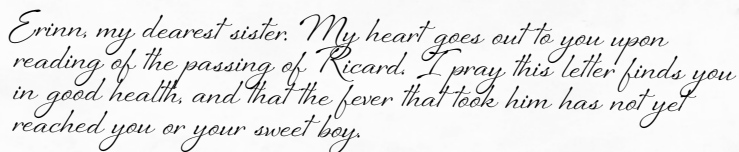 Erinn, my dearest sister. My heart goes out to you upon
reading of the passing of Ricard. I pray this letter finds you
in good health, and that the fever that took him has not yet
reached you or your sweet boy.